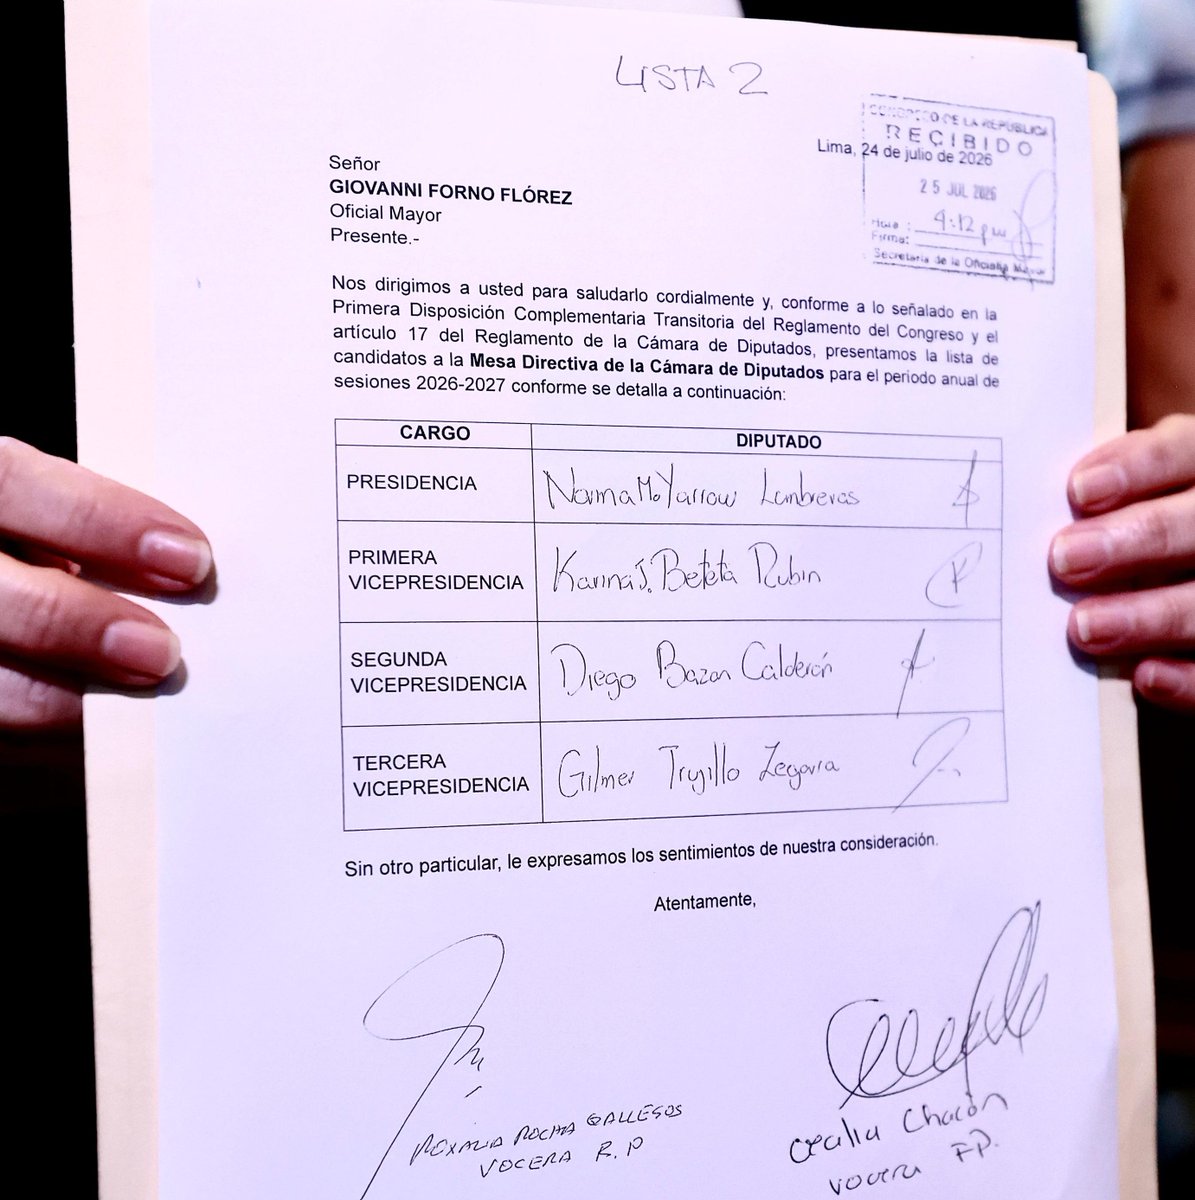 LISTA 2
CONGRESO DE LA REPÚBLICA
RECIBIDO
Lima, 24 de julio de 2026
25 JUL 2026
Hora : 4:12 pm
Firma:
Secretaría de la Oficialía Mayor
Señor
GIOVANNI FORNO FLÓREZ
Oficial Mayor
Presente.-
Nos dirigimos a usted para saludarlo cordialmente y, conforme a lo señalado en la
Primera Disposición Complementaria Transitoria del Reglamento del Congreso y el
artículo 17 del Reglamento de la Cámara de Diputados, presentamos la lista de
candidatos a la Mesa Directiva de la Cámara de Diputados para el periodo anual de
sesiones 2026-2027 conforme se detalla a continuación:
CARGO DIPUTADO
PRESIDENCIA Norma M. Yarrow Lumbreras
PRIMERA
VICEPRESIDENCIA Karina J. Beteta Rubin
SEGUNDA
VICEPRESIDENCIA Diego Bazan Calderón
TERCERA
VICEPRESIDENCIA Gilmer Trujillo Zegarra
Sin otro particular, le expresamos los sentimientos de nuestra consideración.
Atentamente,
ROXANA ROCHA GALLEGOS
VOCERA R.P
Cecilia Chacón
vocera FP.